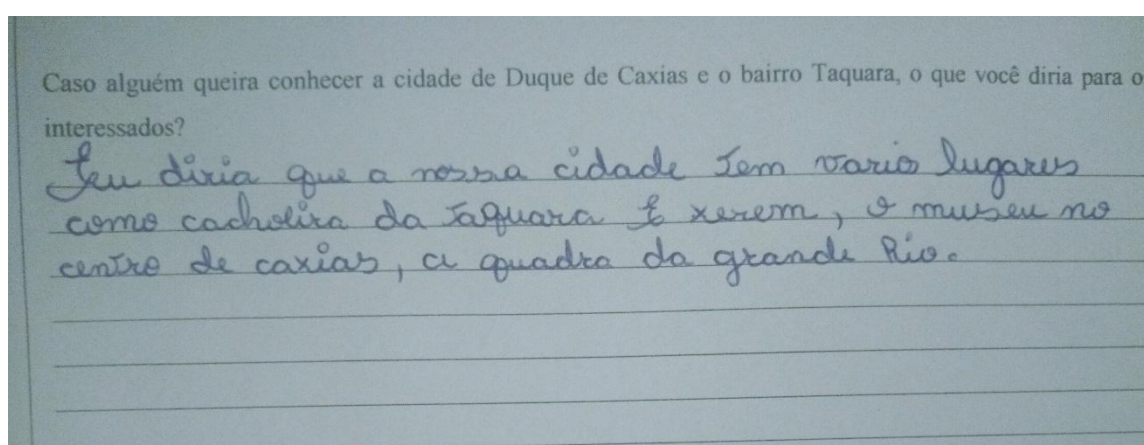 Caso alguém queira conhecer a cidade de Duque de Caxias e o bairro Taquara, o que você diria para o
interessados?
Eu diria que a nossa cidade tem vario lugares
como cachoeira da Taquara E xerem, o museu no
centro de caxias, a quadra da grande Rio.